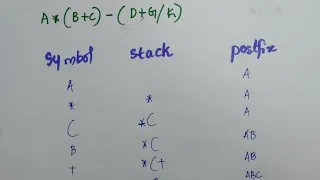 A * (B+C) - (D+G/K)
symbol stack postfix
A A
* * A
( *( A
B *( AB
+ *(+ AB
ABC